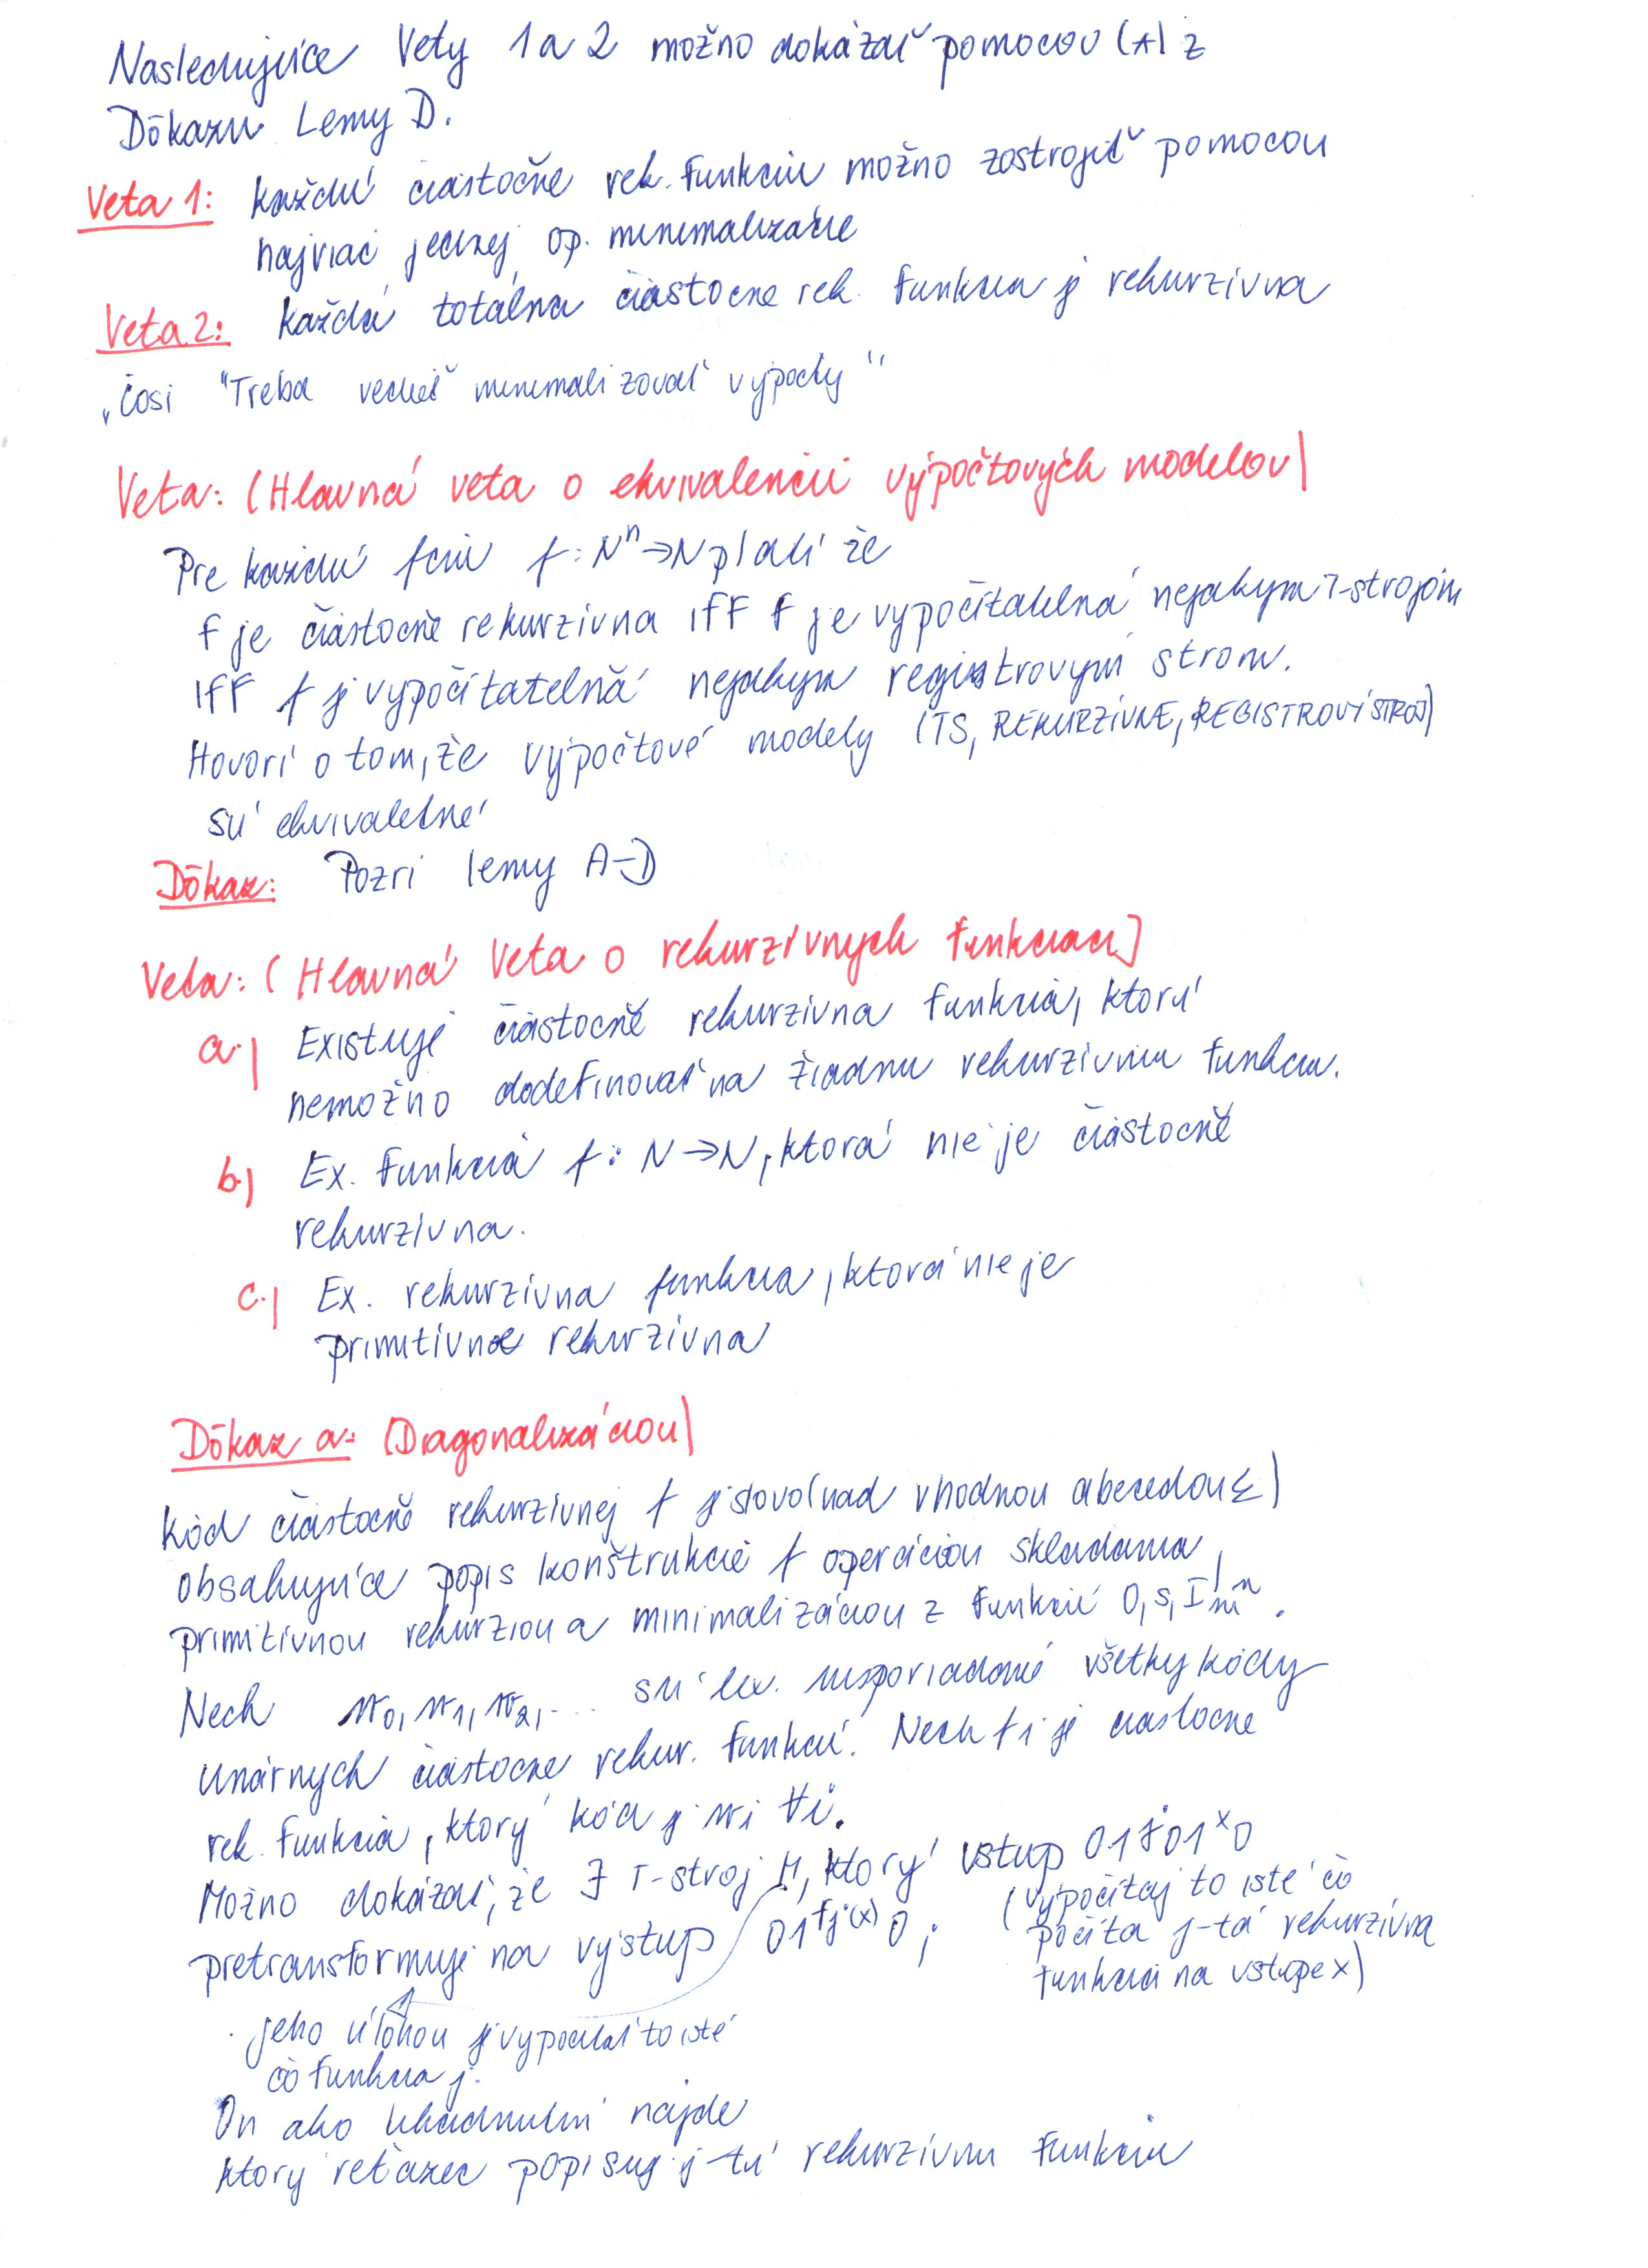 Nasledujúce Vety 1 a 2 možno dokázať pomocou (*) z
Dôkazu Lemy D.
Veta 1: každú čiastočne rek. funkciu možno zostrojiť pomocou
najviac jednej op. minimalizácie
Veta 2: každá totálna čiastočne rek. funkcia je rekurzívna
„čosi "Treba vedieť minimalizovať výpočty"
Veta: (Hlavná veta o ekvivalencii výpočtových modelov)
Pre každú fciu f: N^n → N platí že
f je čiastočne rekurzívna IFF f je vypočítateľná nejakym T-strojom
IFF f je vypočítateľná nejakym registrovým strom.
Hovorí o tom, že výpočtové modely (TS, REKURZÍVNE, REGISTROVÍ STROJ)
sú ekvivaletné
Dôkaz: Pozri lemy A-D
Veta: (Hlavná Veta o rekurzívnych funkciach)
a.) Existuje čiastočne rekurzívna funkcia, ktorú
nemožno dodefinovať na žiadnu rekurzívnu funkciu.
b) Ex. funkcia f: N → N, ktorá nie je čiastočne
rekurzívna.
c.) Ex. rekurzívna funkcia, ktorá nie je
primitívne rekurzívna
Dôkaz a: (Diagonalizáciou)
kód čiastočne rekurzívnej f je slovo (nad vhodnou abecedou Σ)
obsahujúce popis konštrukcie f operáciou skladania,
primitívnou rekurziou a minimalizáciou z funkcií 0, s, I_m^n.
Nech w0, w1, w2, ... sú lex. usporiadané všetky kódy
unárnych čiastočne rekur. funkcií. Nech fi je čiastočne
rek. funkcia, ktorý kód je wi ∀i.
Možno dokázať, že ∃ T-stroj M, ktorý vstup 01^j01^x0
pretransformuje na výstup 01^fj(x)0;
(vypočítaj to isté čo
počíta j-tá rekurzívna
funkcia na vstupe x)
jeho úlohou je vypočítať to isté
čo funkcia j.
On ako uhádnutím nájde
ktorý reťazec popisuje j-tú rekurzívnu funkciu